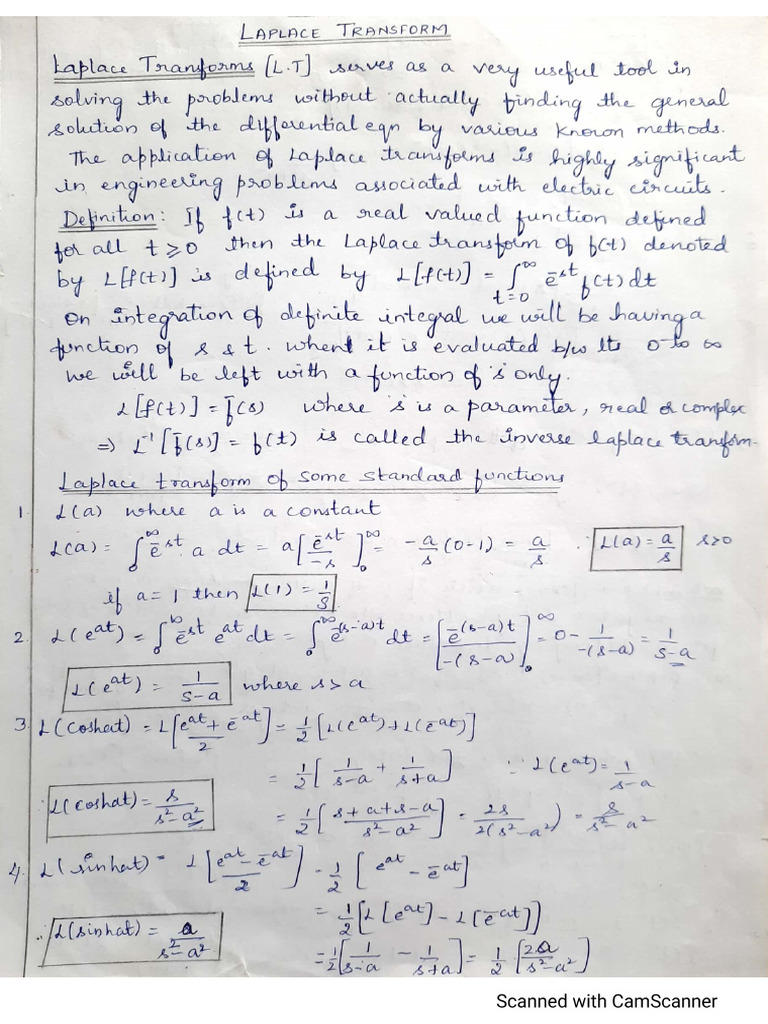 LAPLACE TRANSFORM
Laplace Transforms [L.T] serves as a very useful tool in
solving the problems without actually finding the general
solution of the differential eqn by various known methods.
The application of Laplace transforms is highly significant
in engineering problems associated with electric circuits.
Definition: If f(t) is a real valued function defined
for all t ≥ 0 then the Laplace transform of f(t) denoted
by L[f(t)] is defined by L[f(t)] = ∫_{t=0}^{∞} e^{-st} f(t) dt
On integration of definite integral we will be having a
function of s & t. When it is evaluated b/w lts 0 to ∞
we will be left with a function of 's' only.
L[f(t)] = f̄(s) where 's' is a parameter, real or complex
⇒ L^{-1}[f̄(s)] = f(t) is called the inverse laplace transform.
Laplace transform of some standard functions
1. L(a) where a is a constant
L(a) = ∫_0^∞ e^{-st} a dt = a[e^{-st}/-s]_0^∞ = -a/s (0-1) = a/s ∴ L(a) = a/s s>0
if a = 1 then L(1) = 1/s
2. L(e^{at}) = ∫_0^∞ e^{-st} e^{at} dt = ∫_0^∞ e^{-(s-a)t} dt = [e^{-(s-a)t}/-(s-a)]_0^∞ = 0 - 1/-(s-a) = 1/s-a
L(e^{at}) = 1/s-a where s > a
3. L(coshat) = L[e^{at} + e^{-at}/2] = 1/2 [L(e^{at}) + L(e^{-at})]
= 1/2 [1/s-a + 1/s+a] ∵ L(e^{at}) = 1/s-a
∴ L(coshat) = s/s²-a² = 1/2 [s+a+s-a/s²-a²] = 2s/2(s²-a²) = s/s²-a²
4. L(sinhat) = L[e^{at} - e^{-at}/2] = 1/2 [e^{at} - e^{-at}]
= 1/2 [L[e^{at}] - L(e^{-at})]
∴ L(sinhat) = a/s²-a² = 1/2 [1/s-a - 1/s+a] = 1/2 [2a/s²-a²]
Scanned with CamScanner